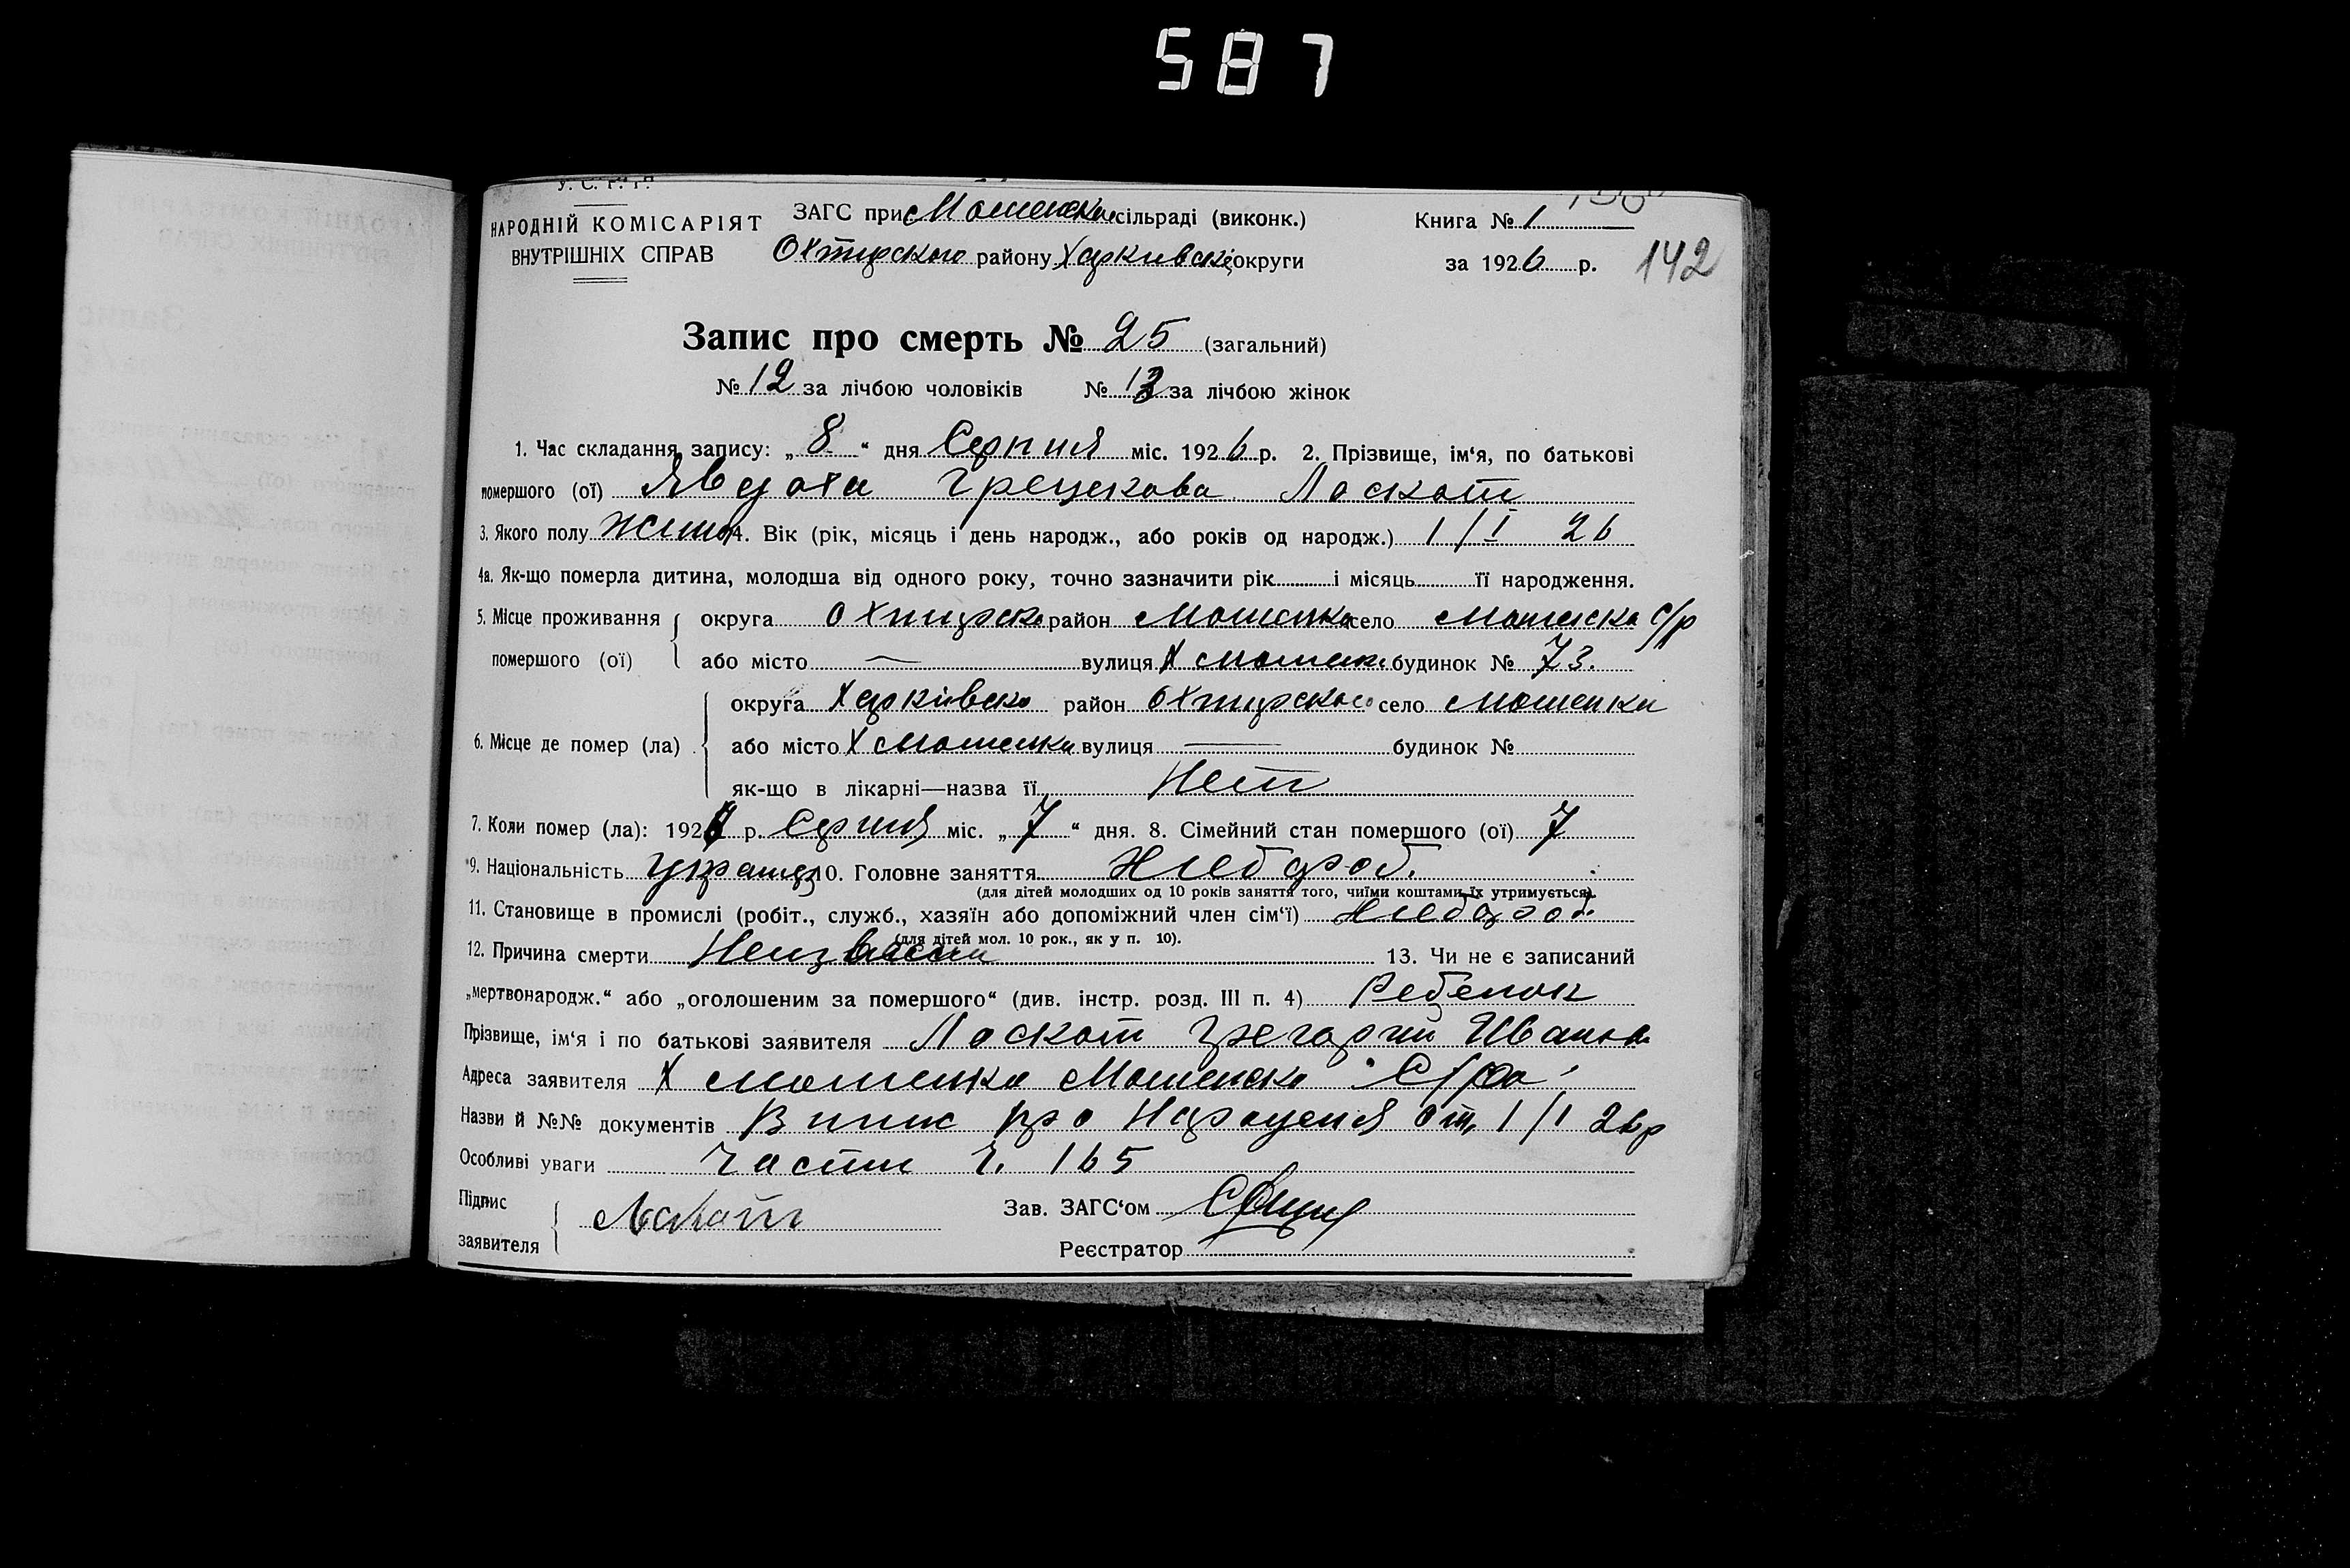 587
У. С. Р. Р.
НАРОДНІЙ КОМІСАРІЯТ
ВНУТРІШНІХ СПРАВ
ЗАГС при Мошенській сільраді (виконк.)
Охтирского району Харківської округи
Книга № 1
за 1926 р.
142
Запис про смерть № 25 (загальний)
№ 12 за лічбою чоловіків № 13 за лічбою жінок
1. Час складання запису: „ 8 “ дня Серпня міс. 1926 р. 2. Прізвище, ім‘я, по батькові
помершого (ої) Явдоха Грецькова Лоскот
3. Якого полу жіноч 4. Вік (рік, місяць і день народж., або років од народж.) 1/I 26
4а. Як-що померла дитина, молодша від одного року, точно зазначити рік і місяць її народження.
5. Місце проживання помершого (ої) округа Охтирско район Мошенка село Мошенска с/р
або місто — вулиця Х Мошенк будинок № 73.
6. Місце де помер (ла) округа Харківско район Охтирского село Мошенки
або місто Х Мошенки вулиця — будинок №
як-що в лікарні—назва її Нет
7. Коли помер (ла): 192 р. Серпня міс. „ 7 “ дня. 8. Сімейний стан помершого (ої) 7
9. Національність украинц 10. Головне заняття Хлебороб.
(для дітей молодших од 10 років заняття того, чиїми коштами їх утримується).
11. Становище в промислі (робіт., служб., хазяїн або допоміжний член сім‘ї) Хлебороб.
(для дітей мол. 10 рок., як у п. 10).
12. Причина смерти Неизвесни 13. Чи не є записаний
„мертвонародж.“ або „оголошеним за помершого“ (див. інстр. розд. III п. 4) Ребенок
Прізвище, ім‘я і по батькові заявителя Лоскот Грегорий Иванов
Адреса заявителя Х Мошенка Мошенско С/ра
Назви й №№ документів Випис про Нарождення от, 1/1 26р
Особливі уваги Части Ч. 165
Підпис заявителя Лоскот
Зав. ЗАГС‘ом
Реєстратор